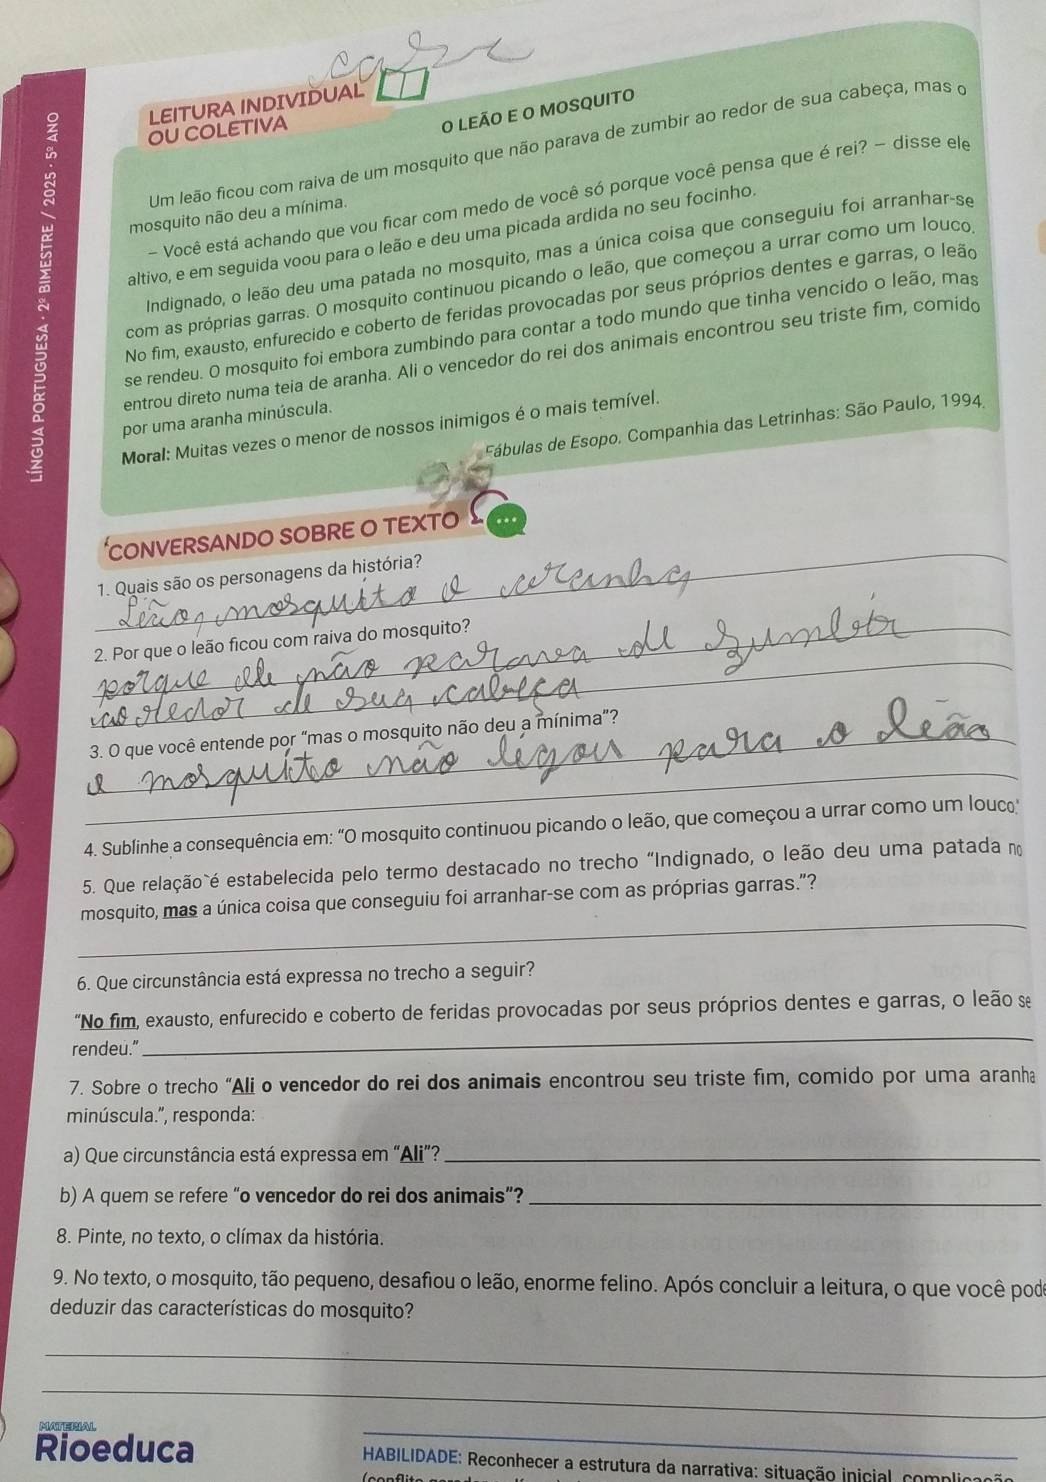 casa
LEITURA INDIVIDUAL
OU COLETIVA
O LEÃO E O MOSQUITO
Um leão ficou com raiva de um mosquito que não parava de zumbir ao redor de sua cabeça, mas o
mosquito não deu a mínima.
– Você está achando que vou ficar com medo de você só porque você pensa que é rei? – disse ele
altivo, e em seguida voou para o leão e deu uma picada ardida no seu focinho.
Indignado, o leão deu uma patada no mosquito, mas a única coisa que conseguiu foi arranhar-se
com as próprias garras. O mosquito continuou picando o leão, que começou a urrar como um louco.
No fim, exausto, enfurecido e coberto de feridas provocadas por seus próprios dentes e garras, o leão
se rendeu. O mosquito foi embora zumbindo para contar a todo mundo que tinha vencido o leão, mas
entrou direto numa teia de aranha. Ali o vencedor do rei dos animais encontrou seu triste fim, comido
por uma aranha minúscula.
Moral: Muitas vezes o menor de nossos inimigos é o mais temível.
Fábulas de Esopo. Companhia das Letrinhas: São Paulo, 1994.
LÍNGUA PORTUGUESA · 2º BIMESTRE / 2025 · 5º ANO
CONVERSANDO SOBRE O TEXTO
1. Quais são os personagens da história?
Leão, mosquito e aranha
2. Por que o leão ficou com raiva do mosquito?
porque ele não parava de zumbir
ao redor de sua cabeça
3. O que você entende por "mas o mosquito não deu a mínima"?
o mosquito não ligou para o leão
4. Sublinhe a consequência em: "O mosquito continuou picando o leão, que começou a urrar como um louco."
5. Que relação é estabelecida pelo termo destacado no trecho "Indignado, o leão deu uma patada no
mosquito, mas a única coisa que conseguiu foi arranhar-se com as próprias garras."?
6. Que circunstância está expressa no trecho a seguir?
"No fim, exausto, enfurecido e coberto de feridas provocadas por seus próprios dentes e garras, o leão se
rendeu."
7. Sobre o trecho "Ali o vencedor do rei dos animais encontrou seu triste fim, comido por uma aranha
minúscula.", responda:
a) Que circunstância está expressa em "Ali"?
b) A quem se refere "o vencedor do rei dos animais"?
8. Pinte, no texto, o clímax da história.
9. No texto, o mosquito, tão pequeno, desafiou o leão, enorme felino. Após concluir a leitura, o que você pode
deduzir das características do mosquito?
MATERIAL
Rioeduca
HABILIDADE: Reconhecer a estrutura da narrativa: situação inicial, complicação